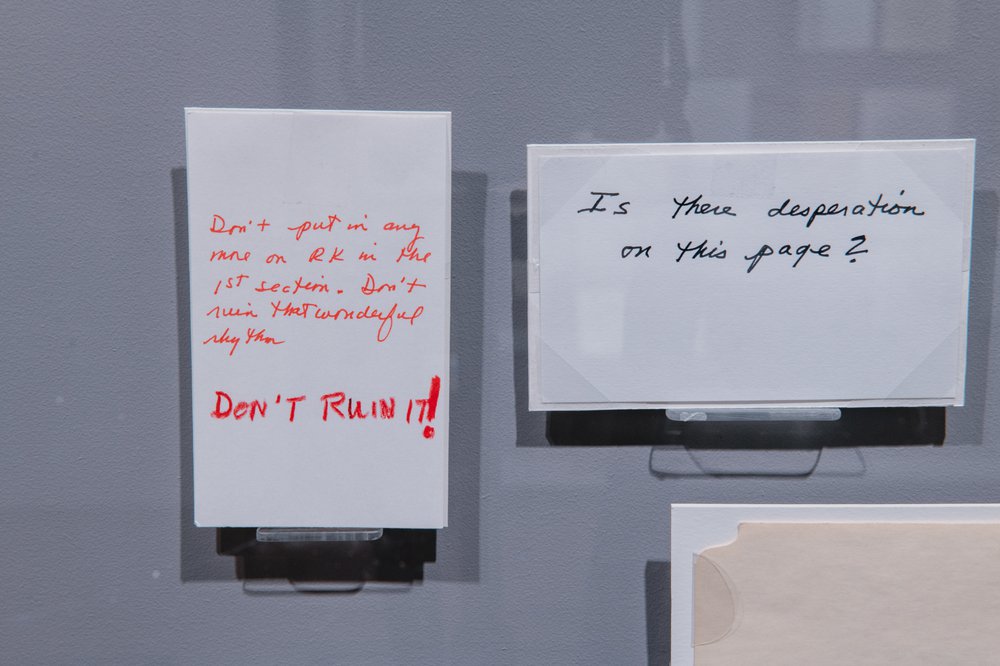 Don't put in any
more on RK in the
1st section. Don't
ruin that wonderful
rhythm
DON'T RUIN IT!
Is there desperation
on this page?